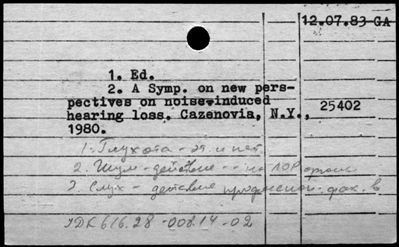 12.07.83 GA
1. Ed.
2. A Symp. on new pers-
pectives on noise-induced
hearing loss. Cazenovia, N.Y.,
1980.
25402
1. Глухота - эт. и пат.
2. Шум - действие - на ЛОР органы
3. Слух - действие професион. фак. в
УДК 616.28-008.14-02